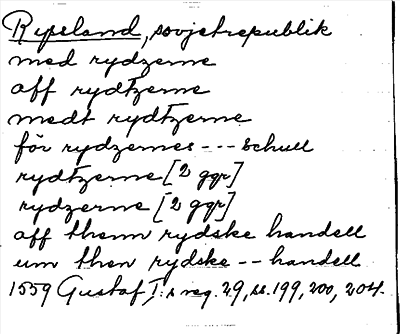 Ryssland, sovjetrepublik
med rydzerne
aff rydtzerne
medt rydtzerne
för rydzernes --- schull
rydtzerne [2 ggr]
rydzerne [2 ggr]
aff themn rydske handell
um then rydske -- handell
1559 Gustaf I:s reg. 29, ss. 199, 200, 204.